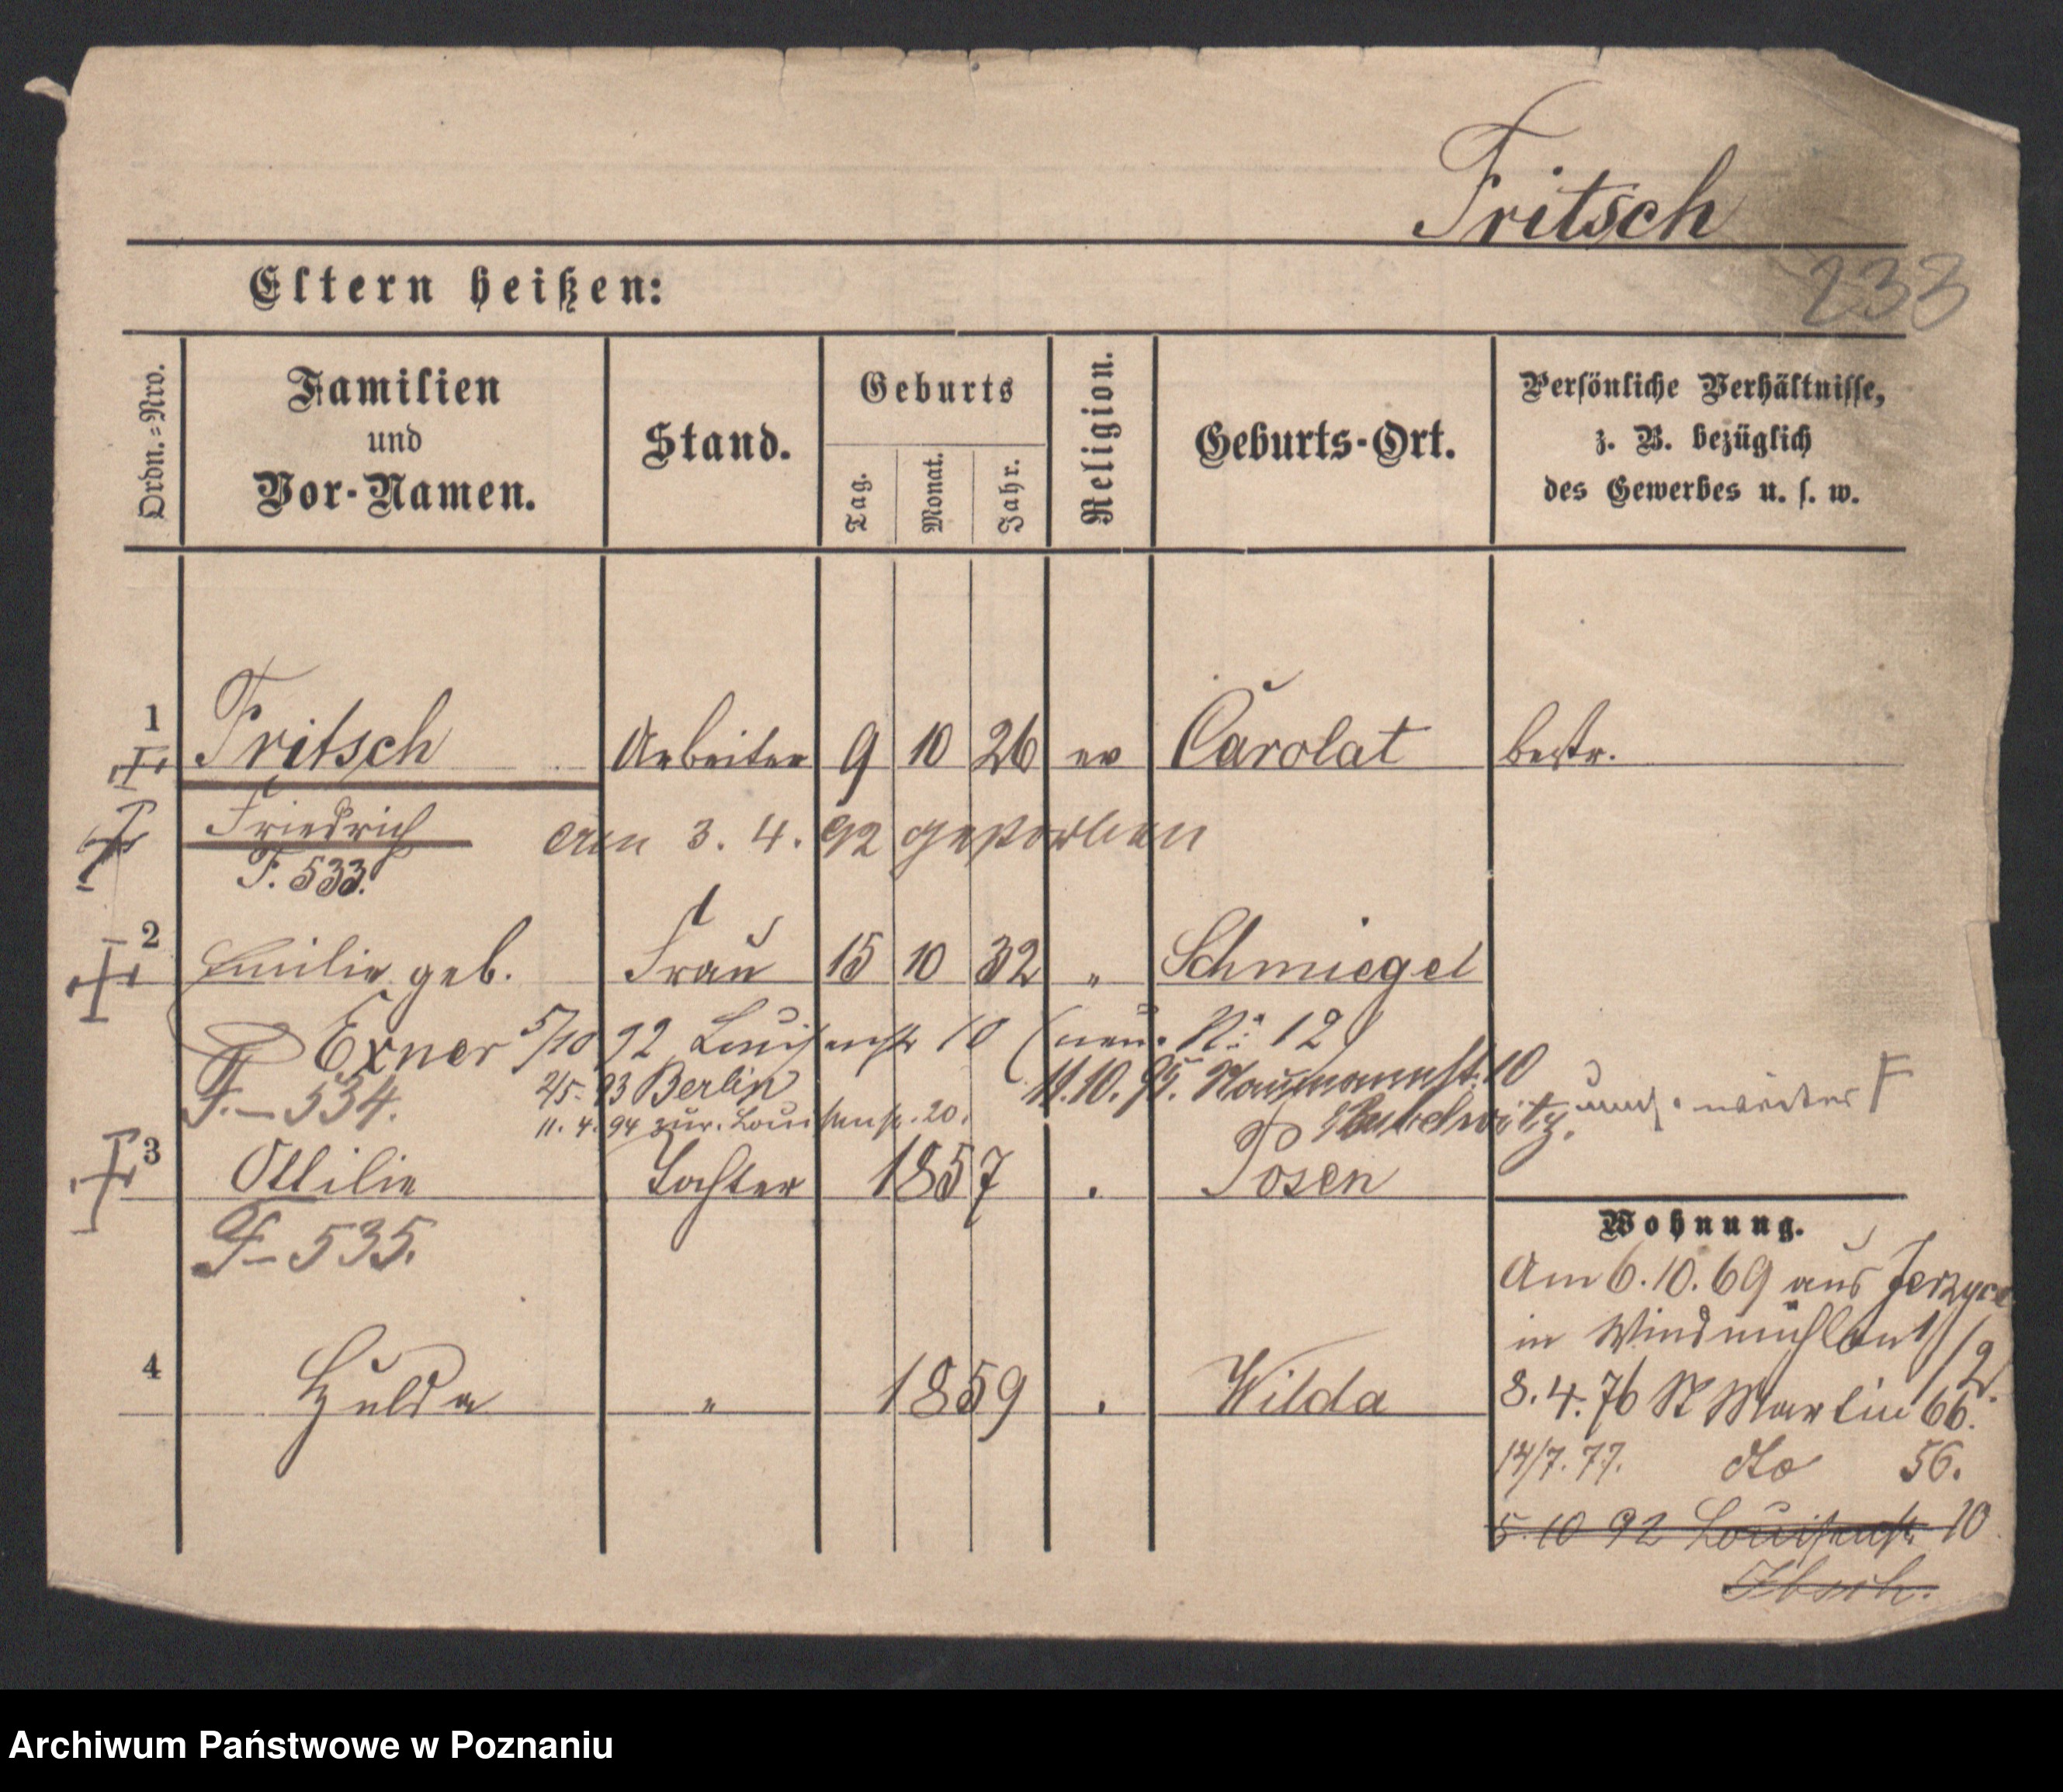 Fritsch
233
Eltern heißen:
Ordn.-Nro.
Familien
und
Vor-Namen.
Stand.
Geburts
Tag.
Monat.
Jahr.
Religion.
Geburts-Ort.
Persönliche Verhältnisse,
z. B. bezüglich
des Gewerbes u. s. w.
1 Fritsch Arbeiter 9 10 26 ev Carolat bestr.
Friedrich am 3. 4. 92 gestorben
F. 533.
2 Emilie geb. Frau 15 10 32 " Schmiegel
Exner 5/10 92 Louisenstr 10 (neue No 12)
F.- 534. 2/5. 93 Berlin 11.10. 95. Naumannst. 10
11. 4. 94 zur. Louisenstr. 20.
3 Ottilie Tochter 1857 . Posen
F- 535.
Wohnung.
Am 6.10.69 aus Jerzyce
in Windmühlen 1/2.
4 Hulda " 1859 . Wilda
8.4.76 St Martin 66.
14/7. 77. dto 56.
5. 10 92 Louisenstr. 10
Archiwum Państwowe w Poznaniu